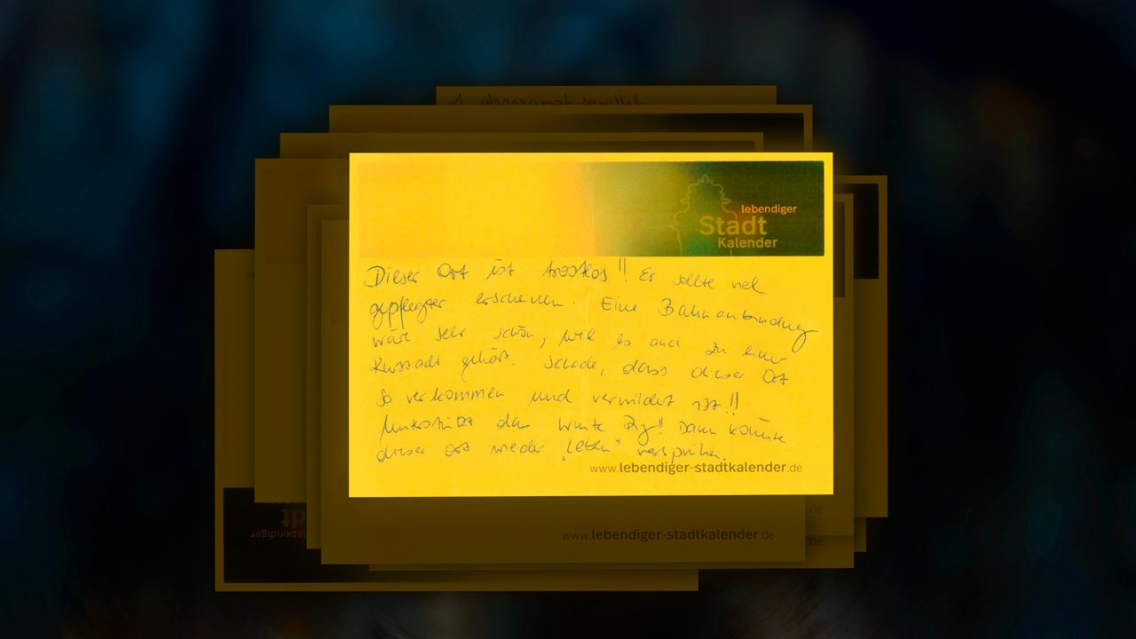 lebendiger
Stadt
Kalender
Dieser Ort ist trostlos!! Er sollte viel
gepflegter erscheinen. Eine Bahnanbindung
wäre sehr schön, wie es auch zu einer
Kursstadt gehört. Schade, dass dieser Ort
so verkommen und verwildert ist!!
das bunte Dann könnte
dieser Ort wieder „leben“ versprühen.
www.lebendiger-stadtkalender.de
www.lebendiger-stadtkalender.de